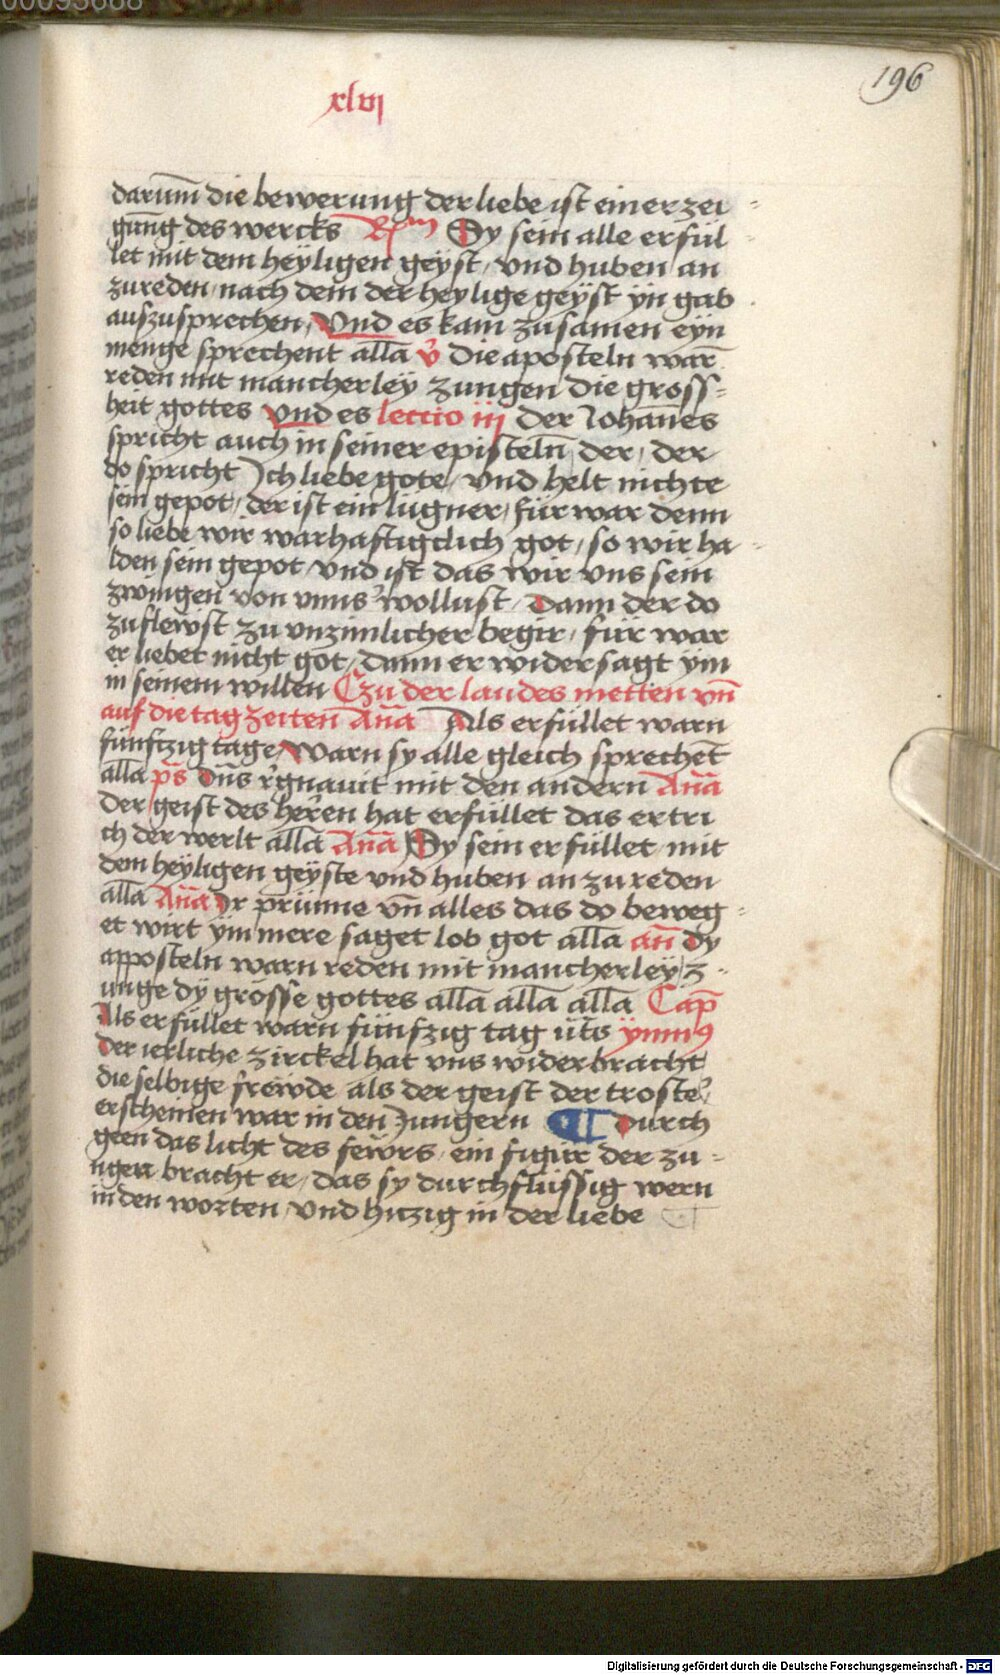 00095668
196
xlvi
darum̄ die bewerung der liebe ist ein erzei-
gūng des wercks Rm Sy sein alle erfül
let mit dem heyligen geyst, vnd huben an
zureden, nach dem der heylige geyst yn gab
auszusprechen, Vnd es kam zusamen eyn
menge sprechent alla v̉ die aposteln warn̄
reden mit mancherley zungen die gross-
heit gottes Vnd es leccio iij der Johānes
spricht auch in seiner episteln̄ der, der
do spricht Jch liebe gote, vnd helt nichte
sein gepot, der ist ein lügner, für war denn
so liebe wir warhaftigclich got, so wir ha-
lden sein gepot, vnd ist das wir vns sein
zwingen von vnns̉ wollust, Dann der do
zuflewst zu vnzimlicher begir, für war
er liebet nicht got, dann er widersagt ym
in seinem willen Czu der laudes metten vn̄
auf die tagzeiten An̄a Als erfüllet warn
fünftzig tage, Warn sy alle gleich sprechet̄
alla ps̄ Dn̄s r̉gnauit mit den andern An̄a
der geist des her̉en hat erfüllet das ertri
ch der werlt alla An̄a Sy sein erfüllet mit
dem heyligen geyste vnd huben an zureden
alla An̄a Ir prünne vn̄ alles das do beweg-
et wirt ym mere saget lob got alla an̄ Dy
apposteln warn reden mit mancherley z-
unge dy grosse gottes alla alla alla Cap̄
Als erfüllet warn fünfzig tag ūts ymnus
Der ierliche zirckel hat vns widerbracht
die selbige frewde als der geist der trostẻ
erscheinen war in den Jungern ¶ Durch
geen das licht des fewrs, ein figur der zu-
ngen bracht er, das sy durchflüssig wern
in den worten, vnd hitzig in der liebe ¶
Digitalisierung gefördert durch die Deutsche Forschungsgemeinschaft - DFG